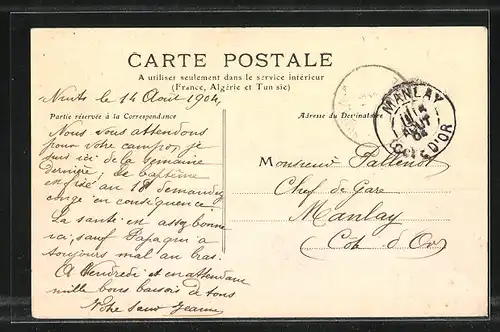 CARTE POSTALE
A utiliser seulement dans le service intérieur
(France, Algérie et Tunisie)
le 14 Août 1904,
Partie réservée à la Correspondance
Adresse du Destinataire
MANLAY
CÔTE D'OR
Nous vous attendons
pour votre campo, je
suis ici de la semaine
dernière; le baptême
est fixé au 18 demandez
congé en conséquence
La santé en assez bonne
ici, sauf Papa qui a
toujours mal au bras.
A Vendredi et en attendant
mille bons baisers à tous
Votre sœur Jeanne
Monsieur Pallenot
Chef de Gare
Manlay
Côte d'Or